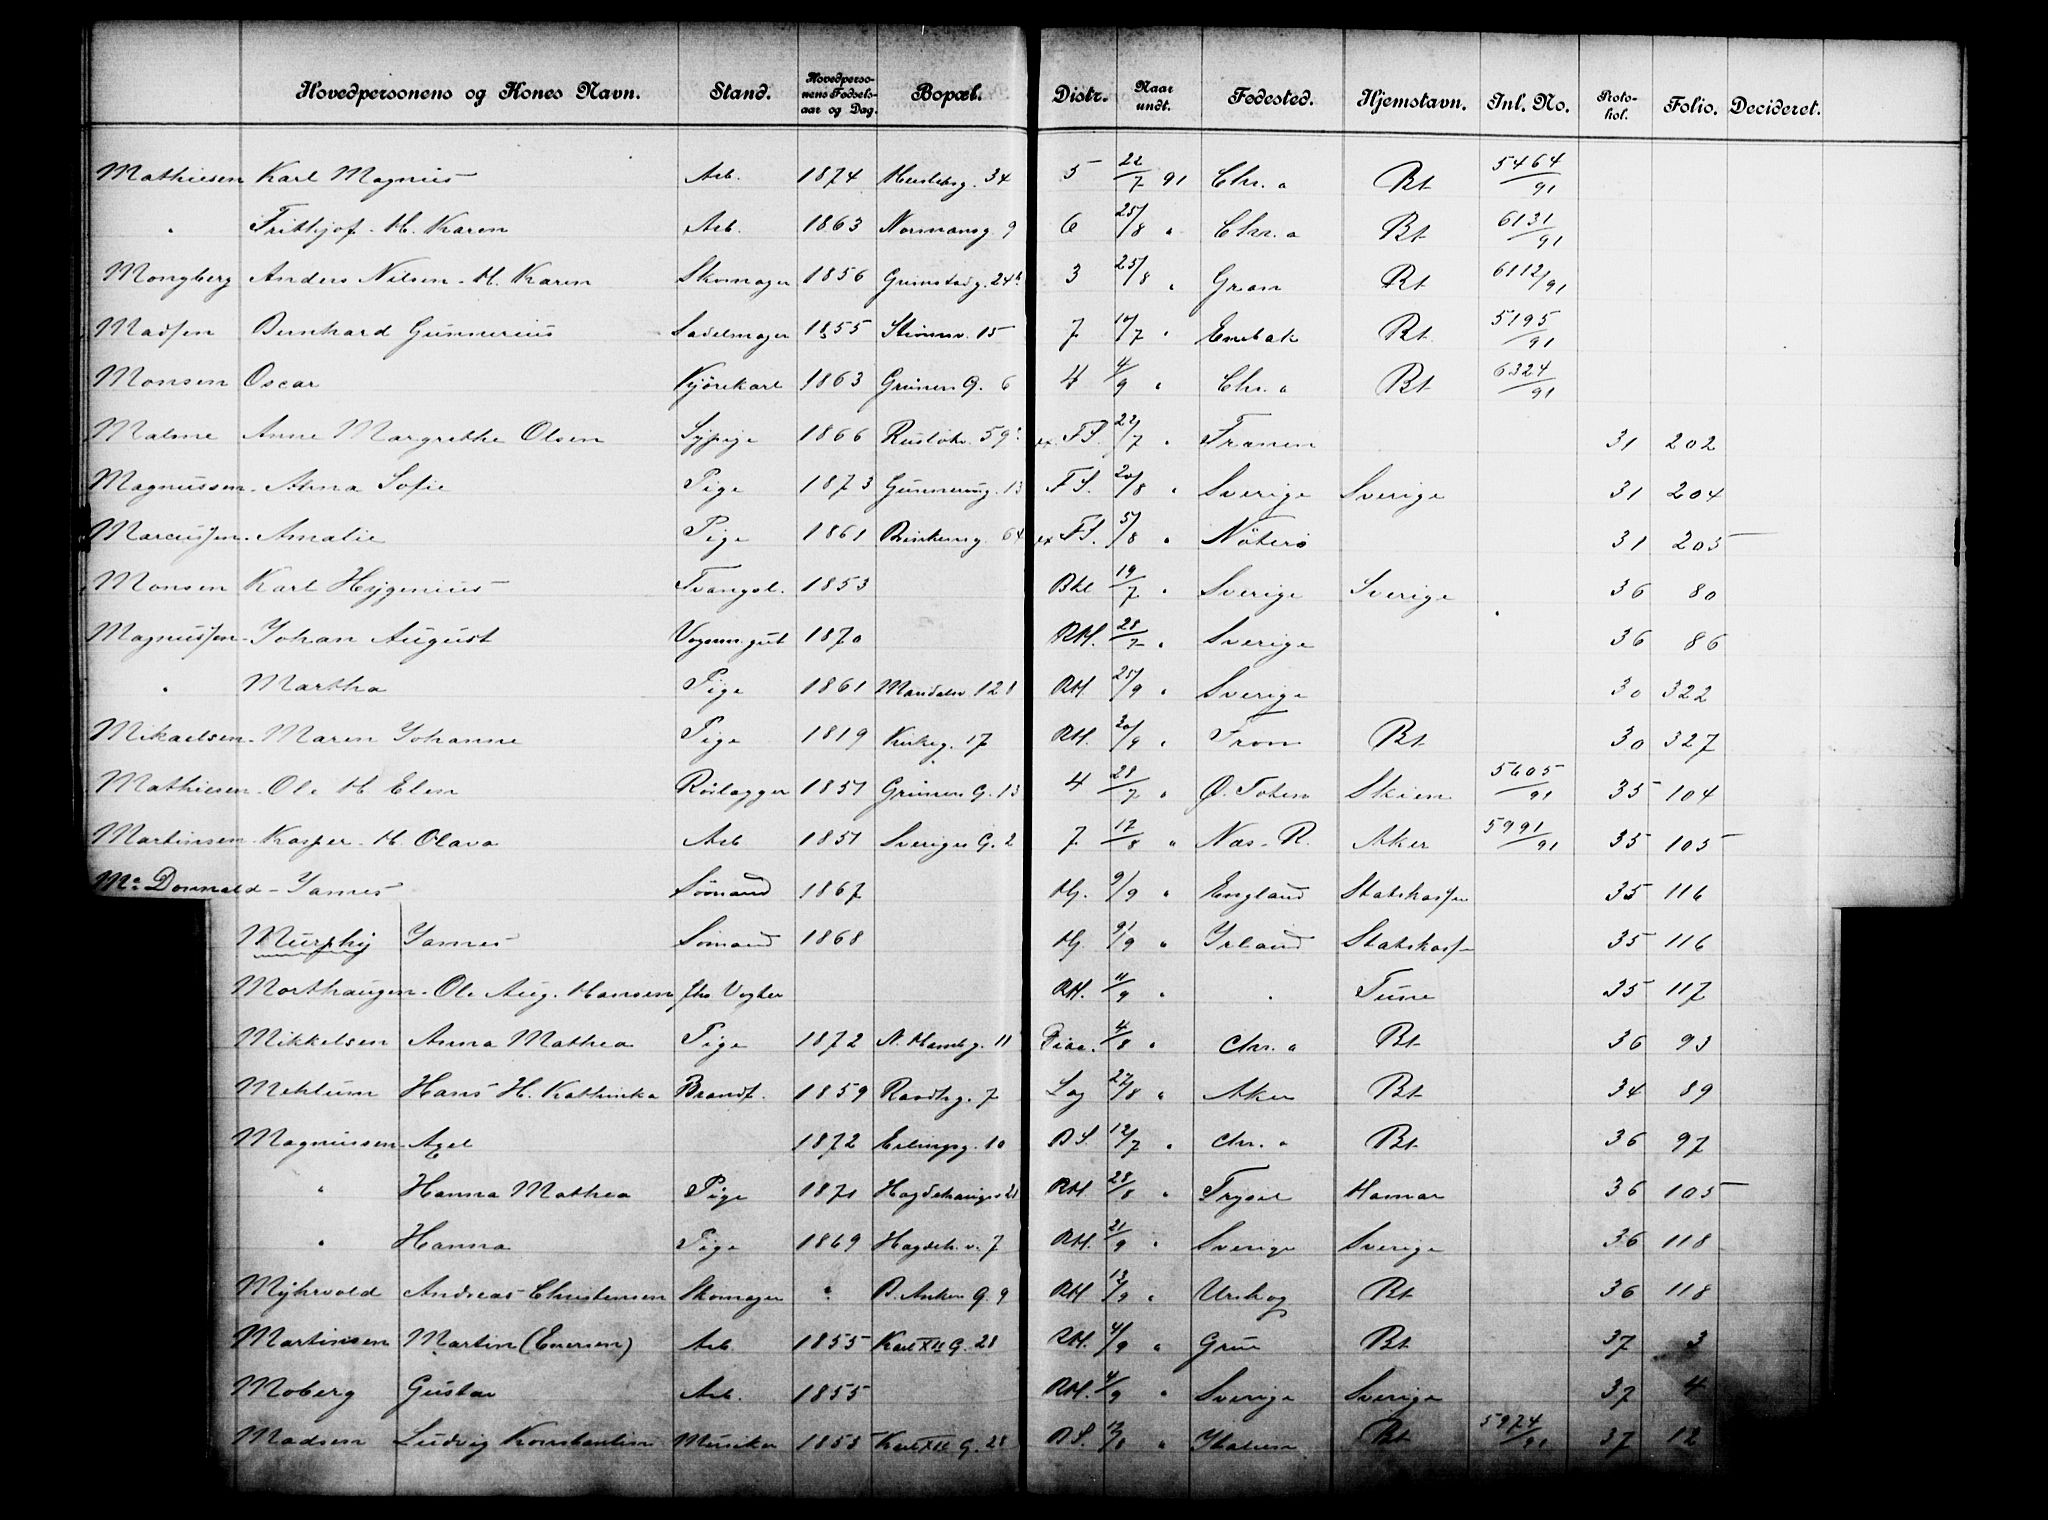 Hovedpersonens og Kones Navn. Stand. Hovedperso-nens Fødsels-aar og Dag. Bopæl. Distr. Naar undt. Fødested. Hjemstavn. Inl. No. Proto-kol. Folio. Decideret.
Mathiesen Karl Magnus Arb. 1874 34 5 22/7 91 Chr.a Bt 5464/91
" Frithjof - H. Karen Arb. 1863 Normansg. 9 6 25/8 " Chr.a Bt 6131/91
Mongberg Anders Nilsen - H. Karen Skomager 1856 Grimstadg. 24b 3 25/8 " Gran Bt 6112/91
Madsen Bernhard Gunnerius Sadelmager 1855 Strømsv. 15 7 10/7 " Enebak Bt 5195/91
Monsen Oscar Kjørekarl 1863 Grüners G. 6 4 4/9 " Chr.a Bt 6324/91
Malme Anne Margrethe Olsen Sypige 1866 59 ex. FS. 22/7 " Franen 31 202
Magnussen - Anna Sofie Pige 1873 Gunnerusg. 13 FS. 20/8 " Sverige Sverige 31 204
Marcussen - Amalie Pige 1861 Brinkensg. 64 ex FS. 5/8 " Nøterø 31 205
Monsen Karl Hygenius Tvangsl. 1853 Bkl 19/7 " Sverige Sverige 36 80
Magnussen - Johan August Vognm. gut 1870 RH. 28/7 " Sverige 36 86
" Martha Pige 1861 Mandalsv. 128 RH. 25/9 " Sverige 30 322
Mikaelsen - Maren Johanne Pige 1819 Kirkeg. 17 RH. 20/9 " Tron Bt 30 327
Mathiesen - Ole H Elen Rørlægger 1851 Grüners G. 13 4 28/7 " Ø. Toten Skien 5605/91 35 104
Martinsen - Kasper - H. Olava Arb 1851 Sveriges G. 2 7 17/8 " Nas - R. Aker 5991/91 35 105
Mc Donnald - James Sømand 1867 Hj. 9/9 " England Statskassen 35 116
Murphy James Sømand 1868 Hj 9/9 " Irland Statskass 35 116
Morthaugen - Ole Aug. Hansen fhv. Vogter RH. 11/9 " " Tune 35 117
Mikkelsen Anna Mathea Pige 1872 N. Hambg. 11 Diac. 4/8 " Chr.a Bt 36 93
Mehlum Hans H. Kathinka Brandf. 1859 Raadhg. 7 Lag 27/8 " Aker Bt 34 89
Magnussen - Axel 1872 Erlingsg. 10 BS. 12/7 " Chr.a Bt 36 97
" Hanna Mathea Pige 1871 RH 28/8 " Trysil Hamar 36 105
" Hanna Pige 1869 Hagdeh. v. 7 RH. 21/9 " Sverige Sverige 36 118
Myhrvold Andreas Christensen Skomager " B. Ankers G. 9 RH 13/9 " Urskog Bt 36 118
Martinsen Martin (Enersen) Arb. 1855 Karl XII G. 28 RH. 4/9 " Grue Bt 37 3
Moberg Gustav Arb. 1855 RH. 4/9 " Sverige Sverige 37 4
Madsen Ludvig Konstantin Musiker 1855 Karl XII G. 28 BS. " Bt 5974/91 37 12